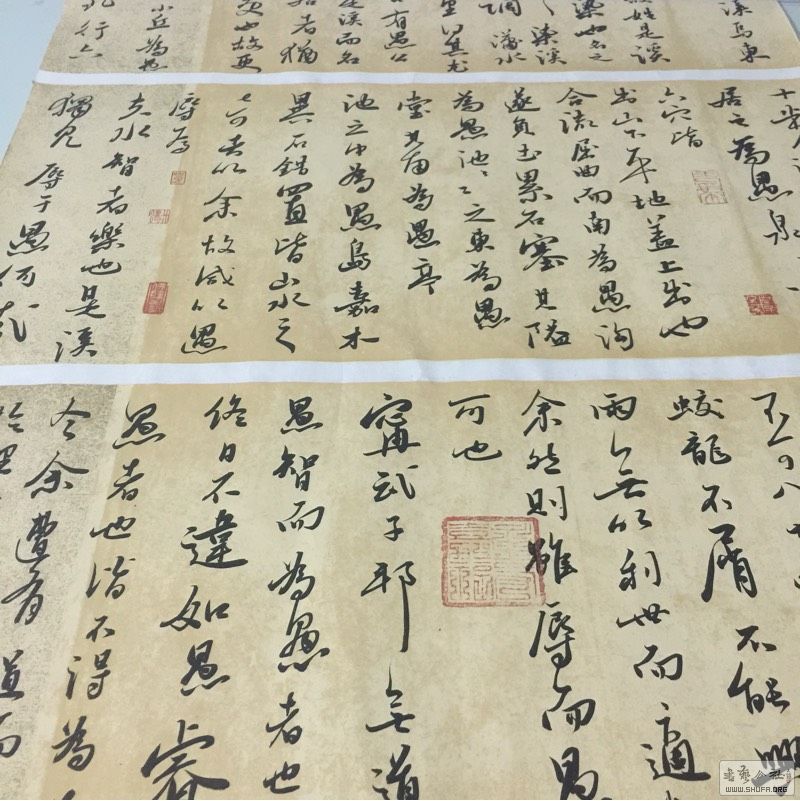 溪焉東
姓是溪
染也名之
染溪
瀟水
有愚公
是溪而名
居者猶
也故更
小丘為愚
北行六
居之為愚泉
六穴皆
出山下平地蓋上出也
合流屈曲而南為愚溝
遂負土累石塞其隘
為愚池〻之東為愚
堂其南為愚亭
池之中為愚島嘉木
異石錯置皆山水之
奇者以余故咸以愚
辱焉
夫水智者樂也是溪
獨見辱于愚何哉
蛟龍不屑不能興
雨無以利世而適
余然則雖辱而愚
可也
甯武子邦無道
愚智而為愚者也
終日不違如愚睿
愚者也皆不得為
今余遭有道而
WWW.SHUFA.ORG